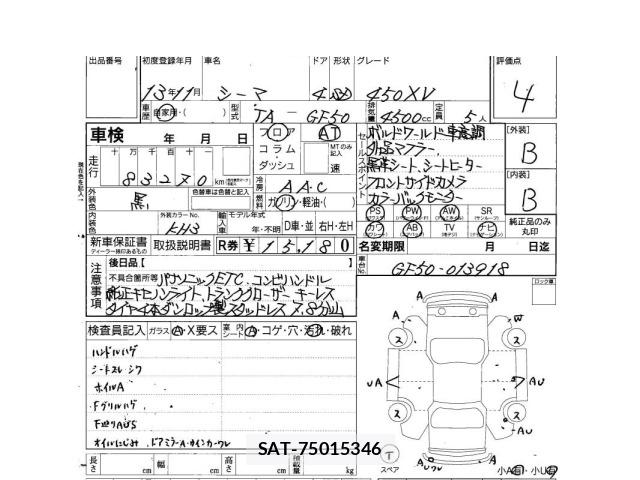 出品番号 初度登録年月 車名 ドア 形状 グレード 評価点
13年11月 シーマ 4 450XV 4
車歴 自家用・( ) 型式 TA-GF50 排気量 4500cc 定員 5人
車検 年 月 日 フロア AT
コラム MTのみ記入
ダッシュ 速
走行 十万 千百十 83270 km
冷房 AAC
燃料 ガソリン・軽油・( )
外装色 黒 色替車は色替と記入
内装色 外装カラーNo. KH3 輸入車 モデル年式 年・不明 D車・並 右H・左H
セールスポイント
社外品マフラー
黒革シート、シートヒーター
フロントサイドカメラ
カラーバックモニター
PS PW AW SR
カワ AB TV ナビ
[外装] B
[内装] B
純正品のみ丸印
新車保証書 取扱説明書 R券 ¥15,180 名変期限 月 日迄
ディーラー印のあるもの
注意事項 後日品【 】
不具合箇所等 パナソニックETC、コンビハンドル
純正キセノンライト、トランククローザー、キーレス
車台No. GF50-013918
ロック車
検査員記入 ガラス A・X要ス 室内シート A・コゲ・穴・汚れ・破れ
ハンドルハゲ
シートスレ、シワ
ホイルA
Fグリルハゲ
オイルにじみ、ドアミラーA・ウインカーワレ
長さ cm 幅 cm 高さ cm 積載量 kg
スペア 小A・小U
A A A W ス ス UA AU ス ス AU A A
SAT-75015346